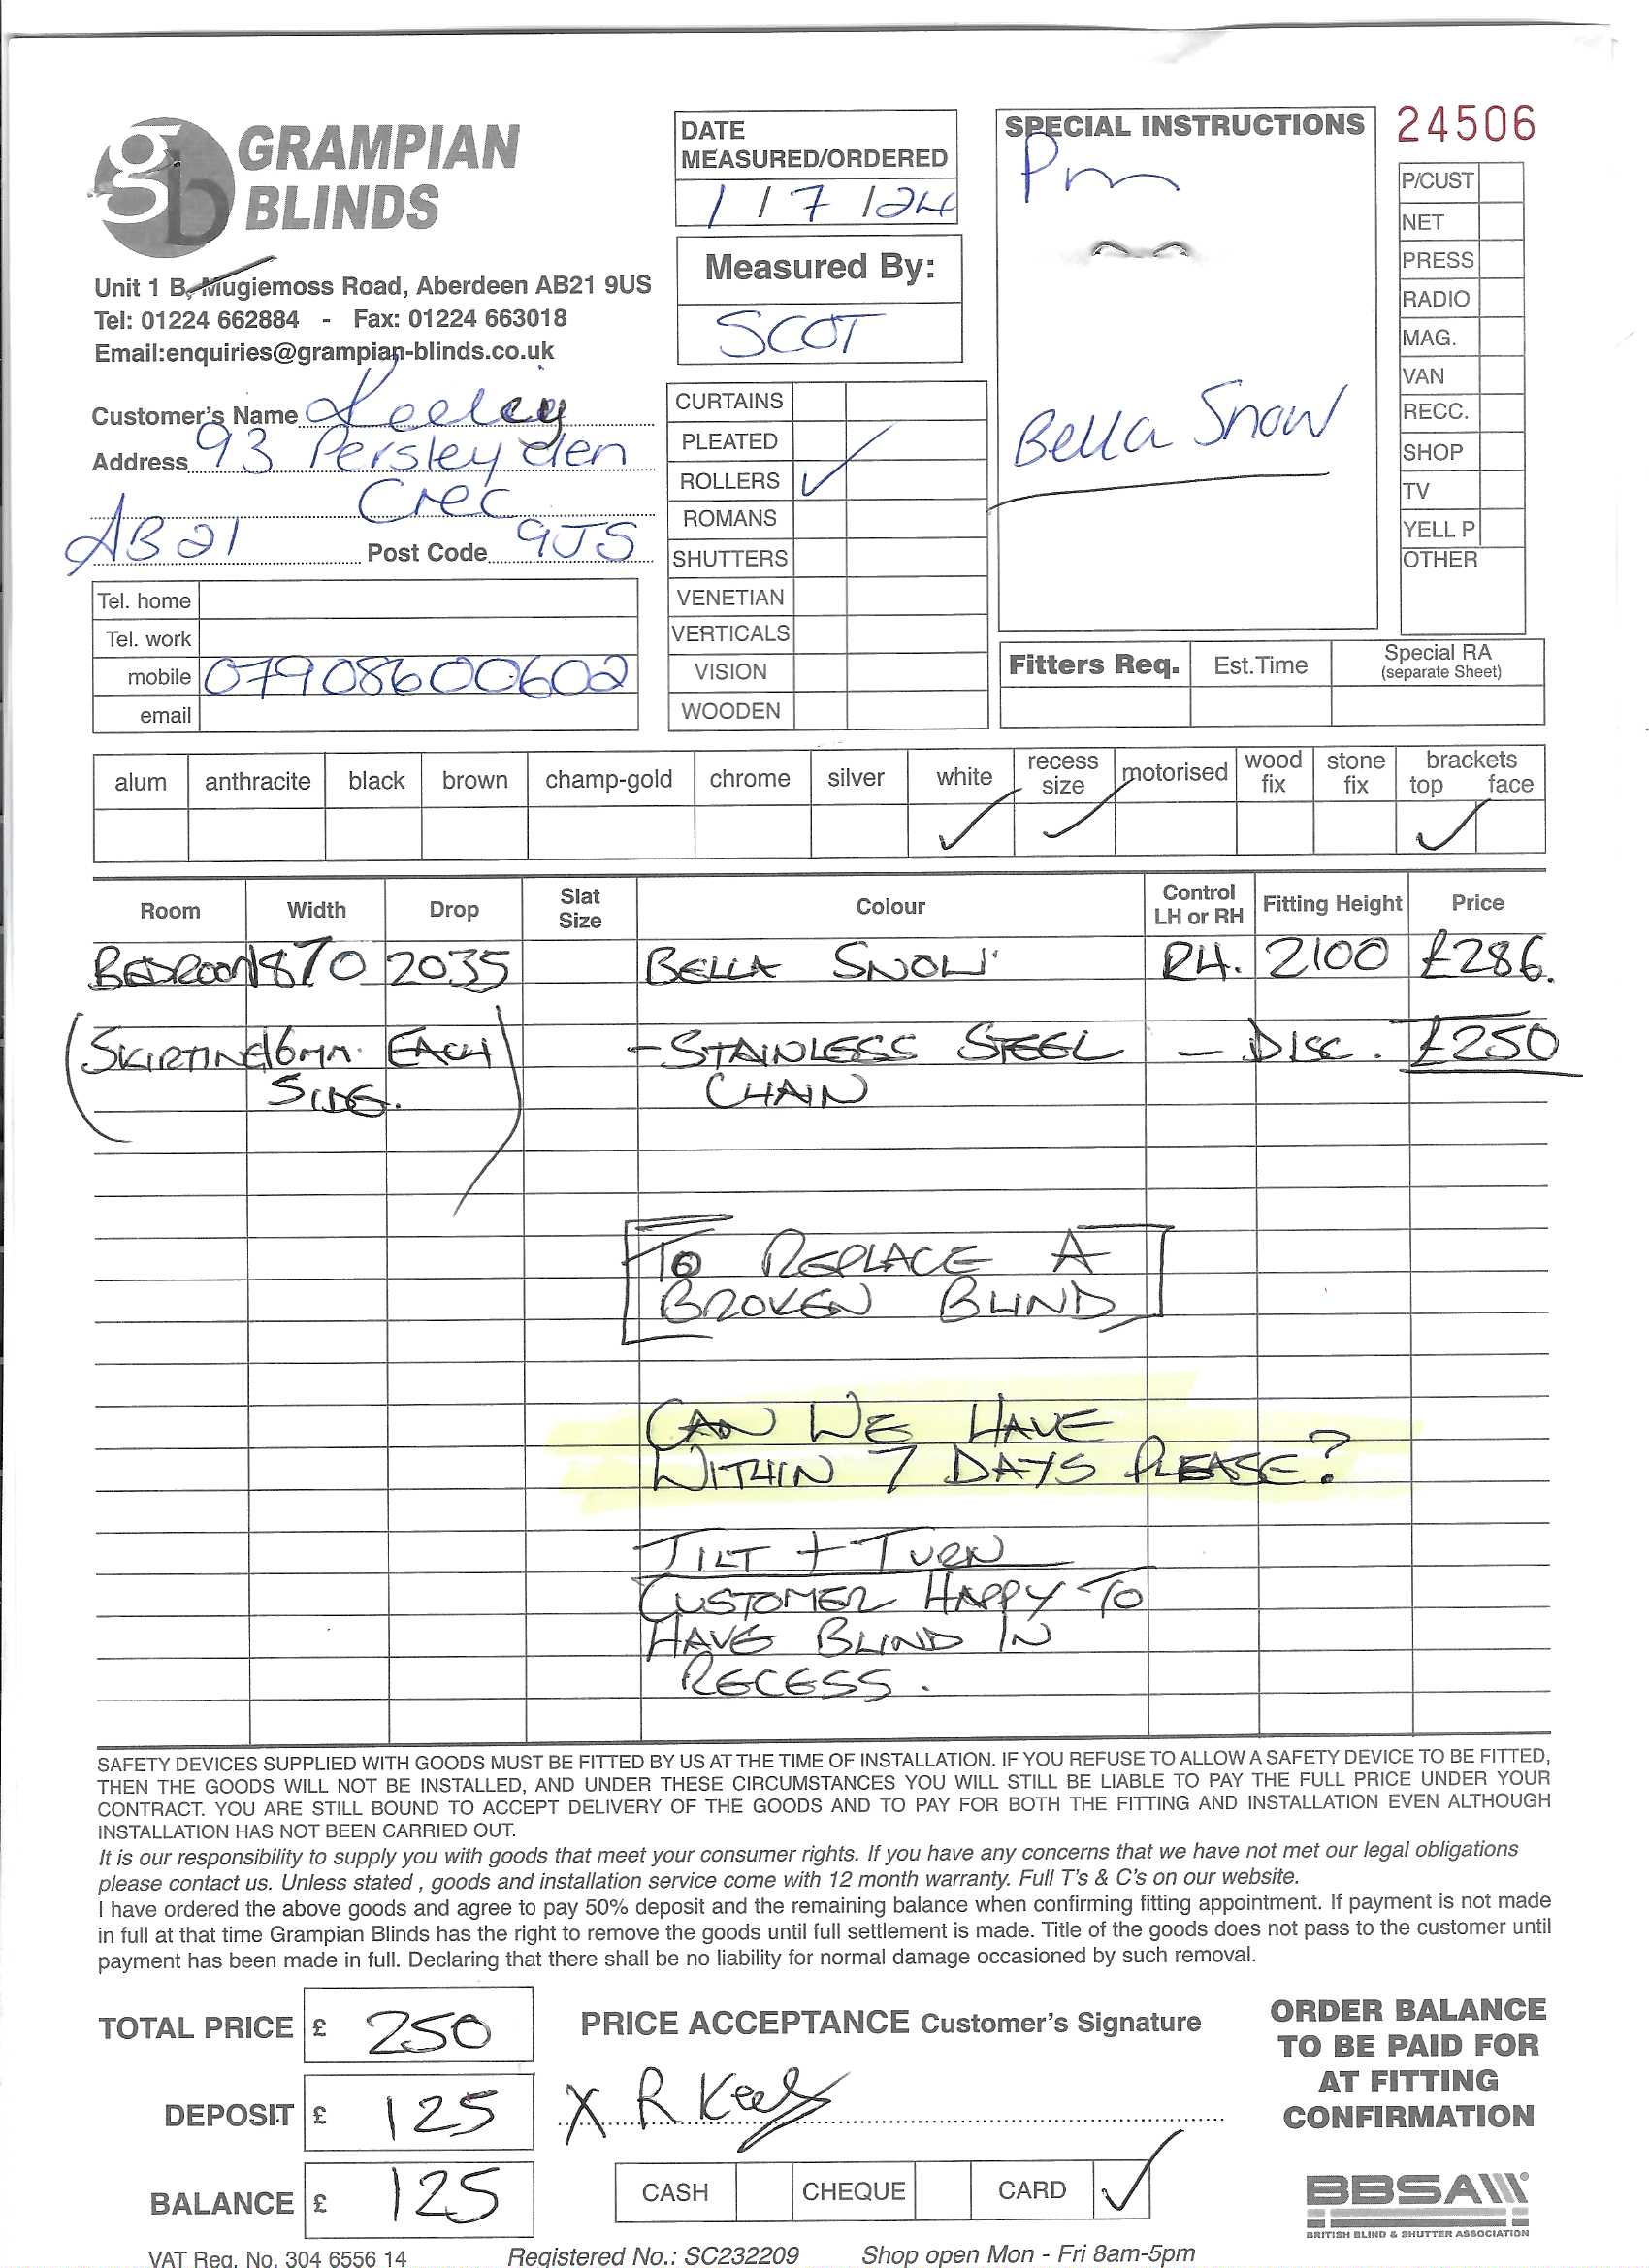 GRAMPIAN
BLINDS
Unit 1 B, Mugiemoss Road, Aberdeen AB21 9US
Tel: 01224 662884 - Fax: 01224 663018
Email:enquiries@grampian-blinds.co.uk
DATE
MEASURED/ORDERED
1 / 7 / 24
Measured By:
SCOT
SPECIAL INSTRUCTIONS
Pm
Bella Snow
24506
P/CUST
NET
PRESS
RADIO
MAG.
VAN
RECC.
SHOP
TV
YELL P
OTHER
Customer's Name
Address 93 Persley den
Cres
AB21 Post Code 9JS
Tel. home
Tel. work
mobile 07908600602
email
CURTAINS
PLEATED
ROLLERS ✓
ROMANS
SHUTTERS
VENETIAN
VERTICALS
VISION
WOODEN
Fitters Req. Est.Time Special RA
(separate Sheet)
alum anthracite black brown champ-gold chrome silver white recess size motorised wood fix stone fix brackets top face
✓ ✓ ✓
Room Width Drop Slat Size Colour Control LH or RH Fitting Height Price
BEDROOM 1870 2035 BELLA SNOW RH. 2100 £286.
(SKIRTING 16mm. EACH - STAINLESS STEEL - DISC. £250
SIDE.) CHAIN
TO REPLACE A
BROKEN BLIND
CAN WE HAVE
WITHIN 7 DAYS PLEASE?
TILT + TURN
CUSTOMER HAPPY TO
HAVE BLIND IN
RECESS.
SAFETY DEVICES SUPPLIED WITH GOODS MUST BE FITTED BY US AT THE TIME OF INSTALLATION. IF YOU REFUSE TO ALLOW A SAFETY DEVICE TO BE FITTED,
THEN THE GOODS WILL NOT BE INSTALLED, AND UNDER THESE CIRCUMSTANCES YOU WILL STILL BE LIABLE TO PAY THE FULL PRICE UNDER YOUR
CONTRACT. YOU ARE STILL BOUND TO ACCEPT DELIVERY OF THE GOODS AND TO PAY FOR BOTH THE FITTING AND INSTALLATION EVEN ALTHOUGH
INSTALLATION HAS NOT BEEN CARRIED OUT.
It is our responsibility to supply you with goods that meet your consumer rights. If you have any concerns that we have not met our legal obligations
please contact us. Unless stated , goods and installation service come with 12 month warranty. Full T's & C's on our website.
I have ordered the above goods and agree to pay 50% deposit and the remaining balance when confirming fitting appointment. If payment is not made
in full at that time Grampian Blinds has the right to remove the goods until full settlement is made. Title of the goods does not pass to the customer until
payment has been made in full. Declaring that there shall be no liability for normal damage occasioned by such removal.
TOTAL PRICE £ 250
DEPOSIT £ 125
BALANCE £ 125
PRICE ACCEPTANCE Customer's Signature
X R Keely
CASH CHEQUE CARD ✓
ORDER BALANCE
TO BE PAID FOR
AT FITTING
CONFIRMATION
BBSA
BRITISH BLIND & SHUTTER ASSOCIATION
VAT Reg. No. 304 6556 14 Registered No.: SC232209 Shop open Mon - Fri 8am-5pm